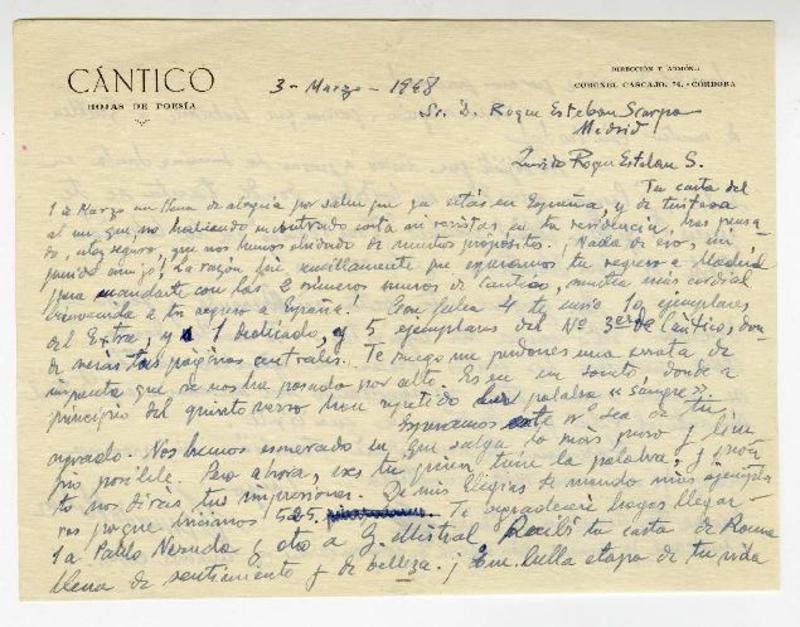 CÁNTICO
HOJAS DE POESÍA
DIRECCIÓN Y ADMÓN.:
CORONEL CASCAJO, 74.-CÓRDOBA
3 - Marzo - 1948
Sr. D. Roque Esteban Scarpa
Madrid
Querido Roque Esteban S.
Tu carta del
1 de Marzo me llena de alegría por saber que ya estás en España, y de tristeza
al ver que, no habiendo encontrado carta ni revistas en tu residencia, has pensa-
do, estoy seguro, que nos hemos olvidado de nuestros propósitos. ¡Nada de eso, mi
querido amigo! La razón fué sencillamente que esperábamos tu regreso a Madrid
para mandarte con los 2 números nuevos de Cántico, nuestra más cordial
bienvenida a tu regreso a España! Con fecha 4 te envío 10 ejemplares
del Extra, y 1 dedicado, y 5 ejemplares del Nº 3º de Cántico, don-
de verás tus páginas centrales. Te ruego me perdones una errata de
imprenta que se nos ha pasado por alto. Es en un soneto, donde a
principio del quinto verso han repetido la palabra «sangre».
Esperamos este nº sea de tu
agrado. Nos hemos esmerado en que salga lo más puro y lim-
pio posible. Pero ahora, eres tú quien tiene la palabra, y pron-
to nos dirás tus impresiones. De mis Elegías te mando más ejempla-
res porque hicimos 525. Te agradeceré hagas llegar
1 a Pablo Neruda y otro a G. Mistral. Recibí tu carta de Roma
llena de sentimiento y de belleza. ¡Qué bella etapa de tu vida